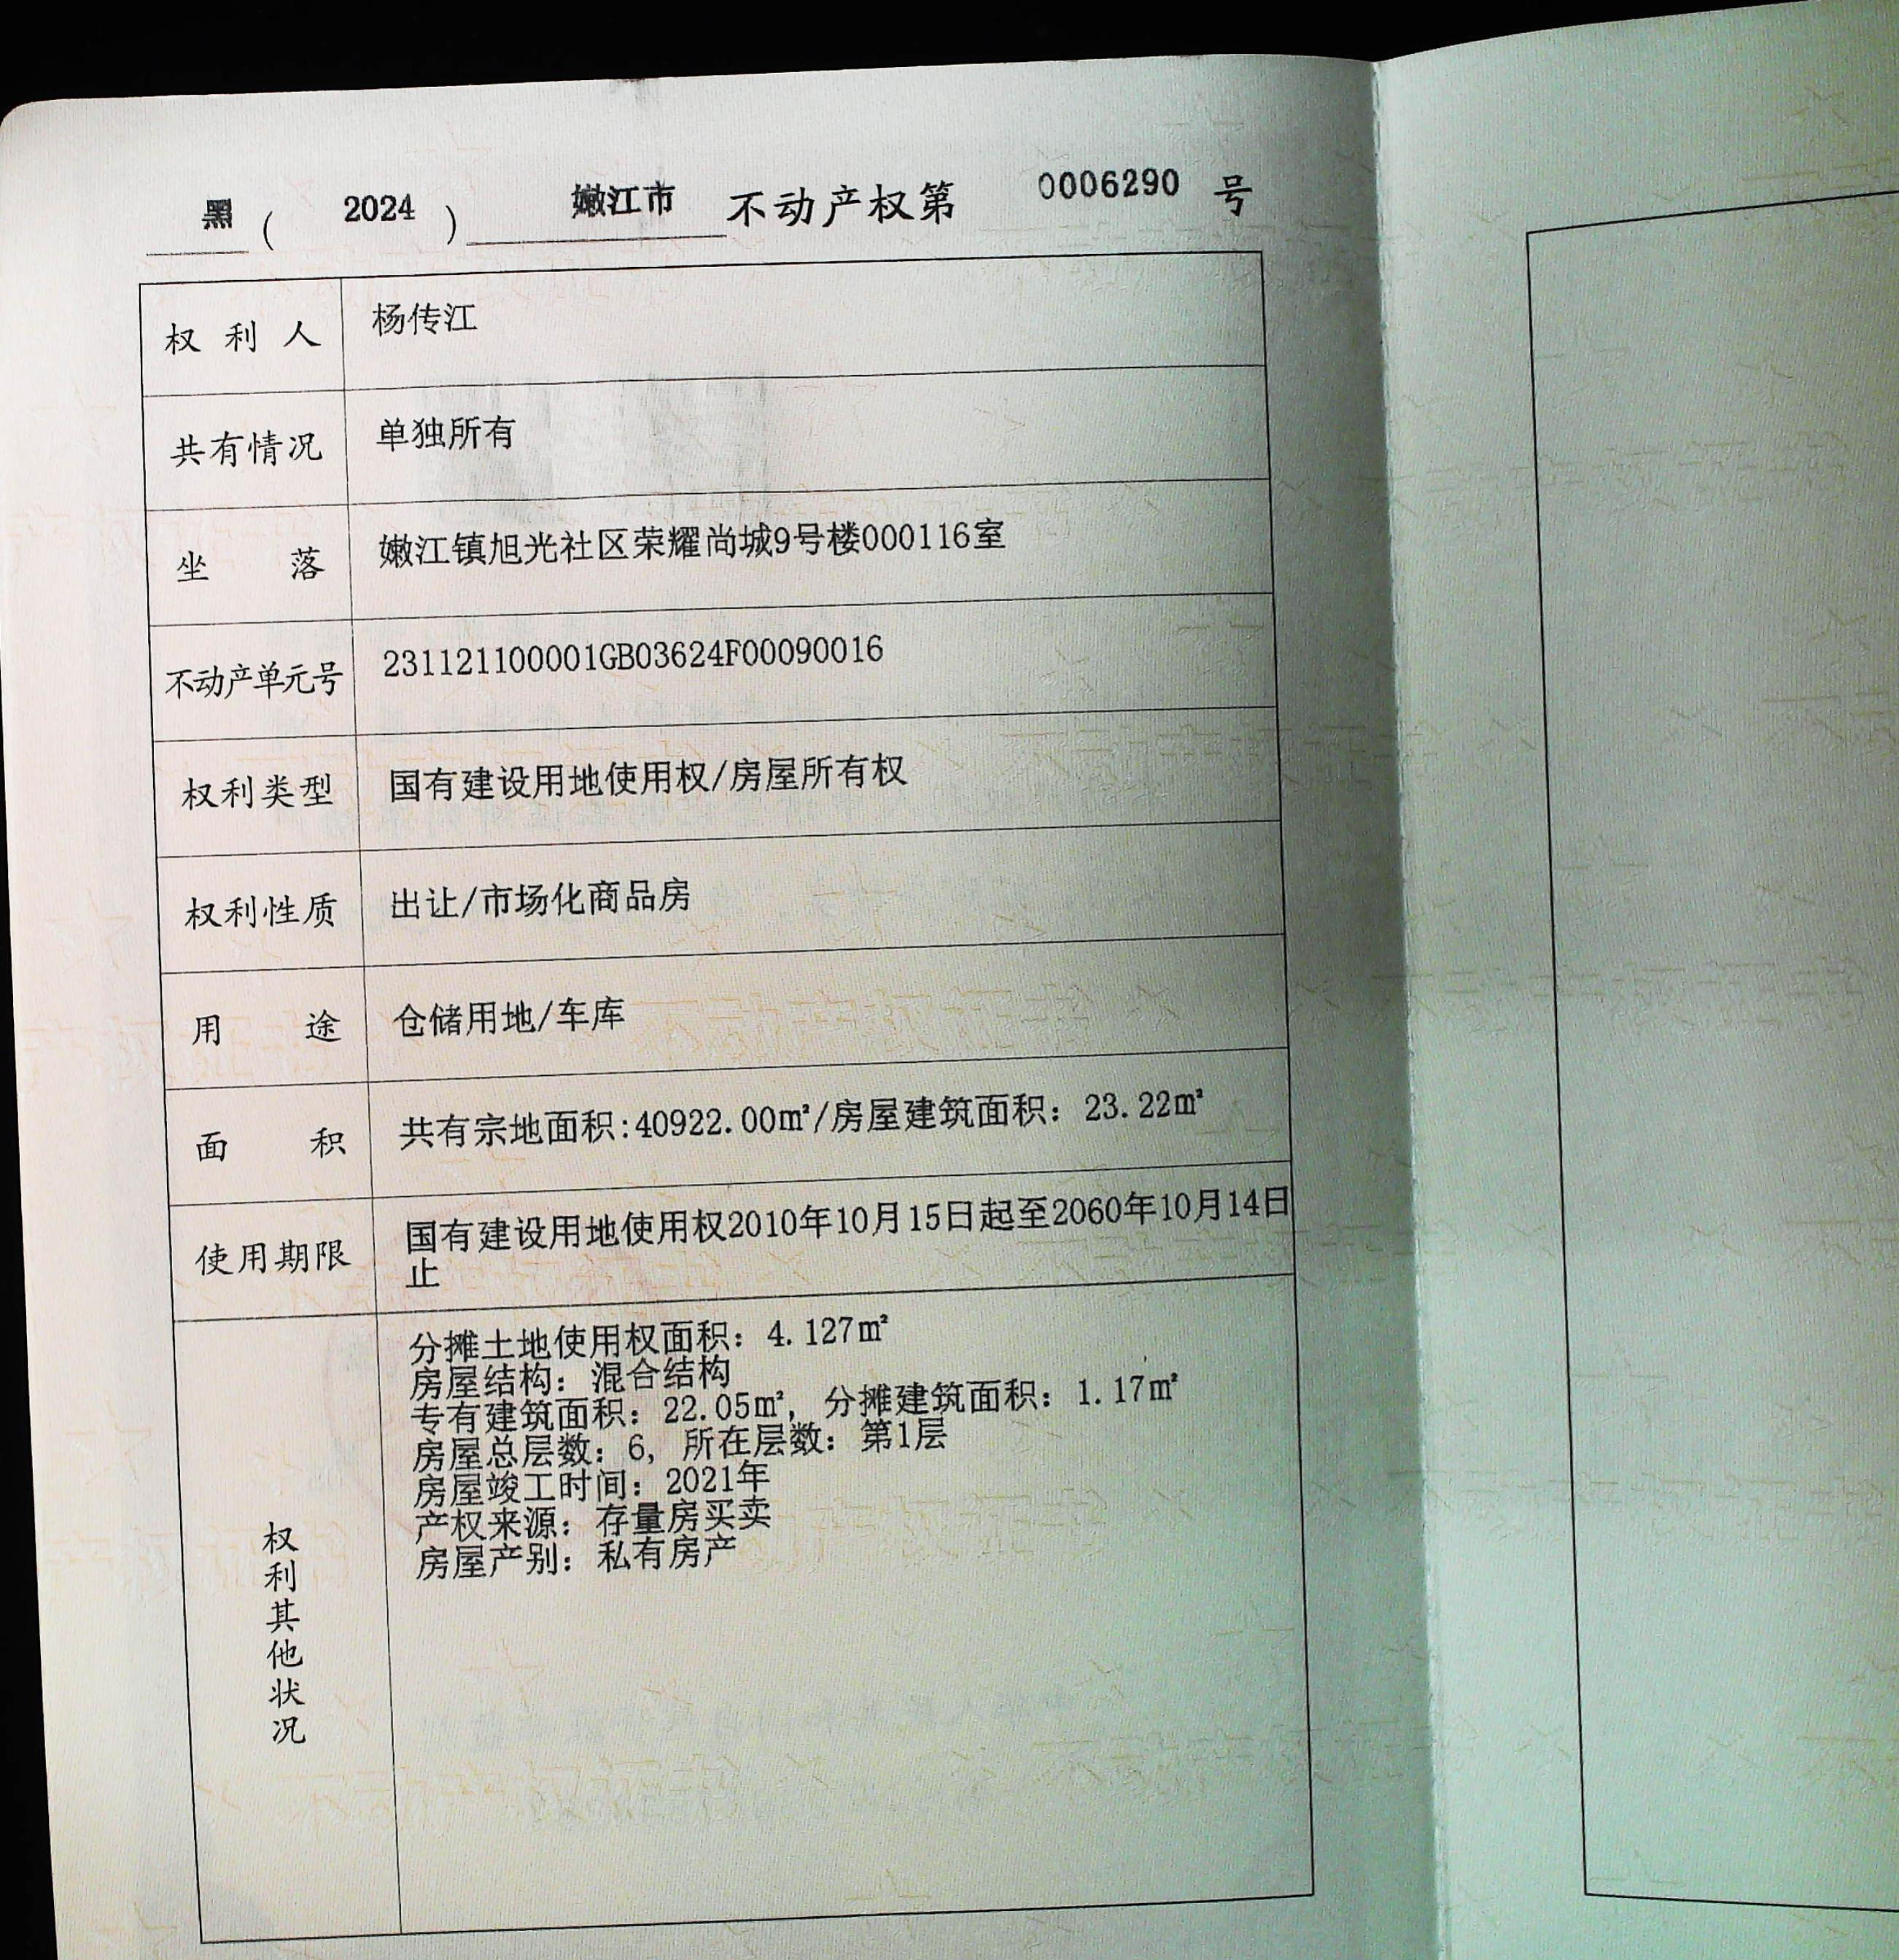 黑 ( 2024 ) 嫩江市 不动产权第 0006290 号
权利人 杨传江
共有情况 单独所有
坐落 嫩江镇旭光社区荣耀尚城9号楼000116室
不动产单元号 231121100001GB03624F00090016
权利类型 国有建设用地使用权/房屋所有权
权利性质 出让/市场化商品房
用途 仓储用地/车库
面积 共有宗地面积:40922.00㎡/房屋建筑面积：23.22㎡
使用期限 国有建设用地使用权2010年10月15日起至2060年10月14日
止
权利其他状况
分摊土地使用权面积：4.127㎡
房屋结构：混合结构
专有建筑面积：22.05㎡，分摊建筑面积：1.17㎡
房屋总层数：6，所在层数：第1层
房屋竣工时间：2021年
产权来源：存量房买卖
房屋产别：私有房产